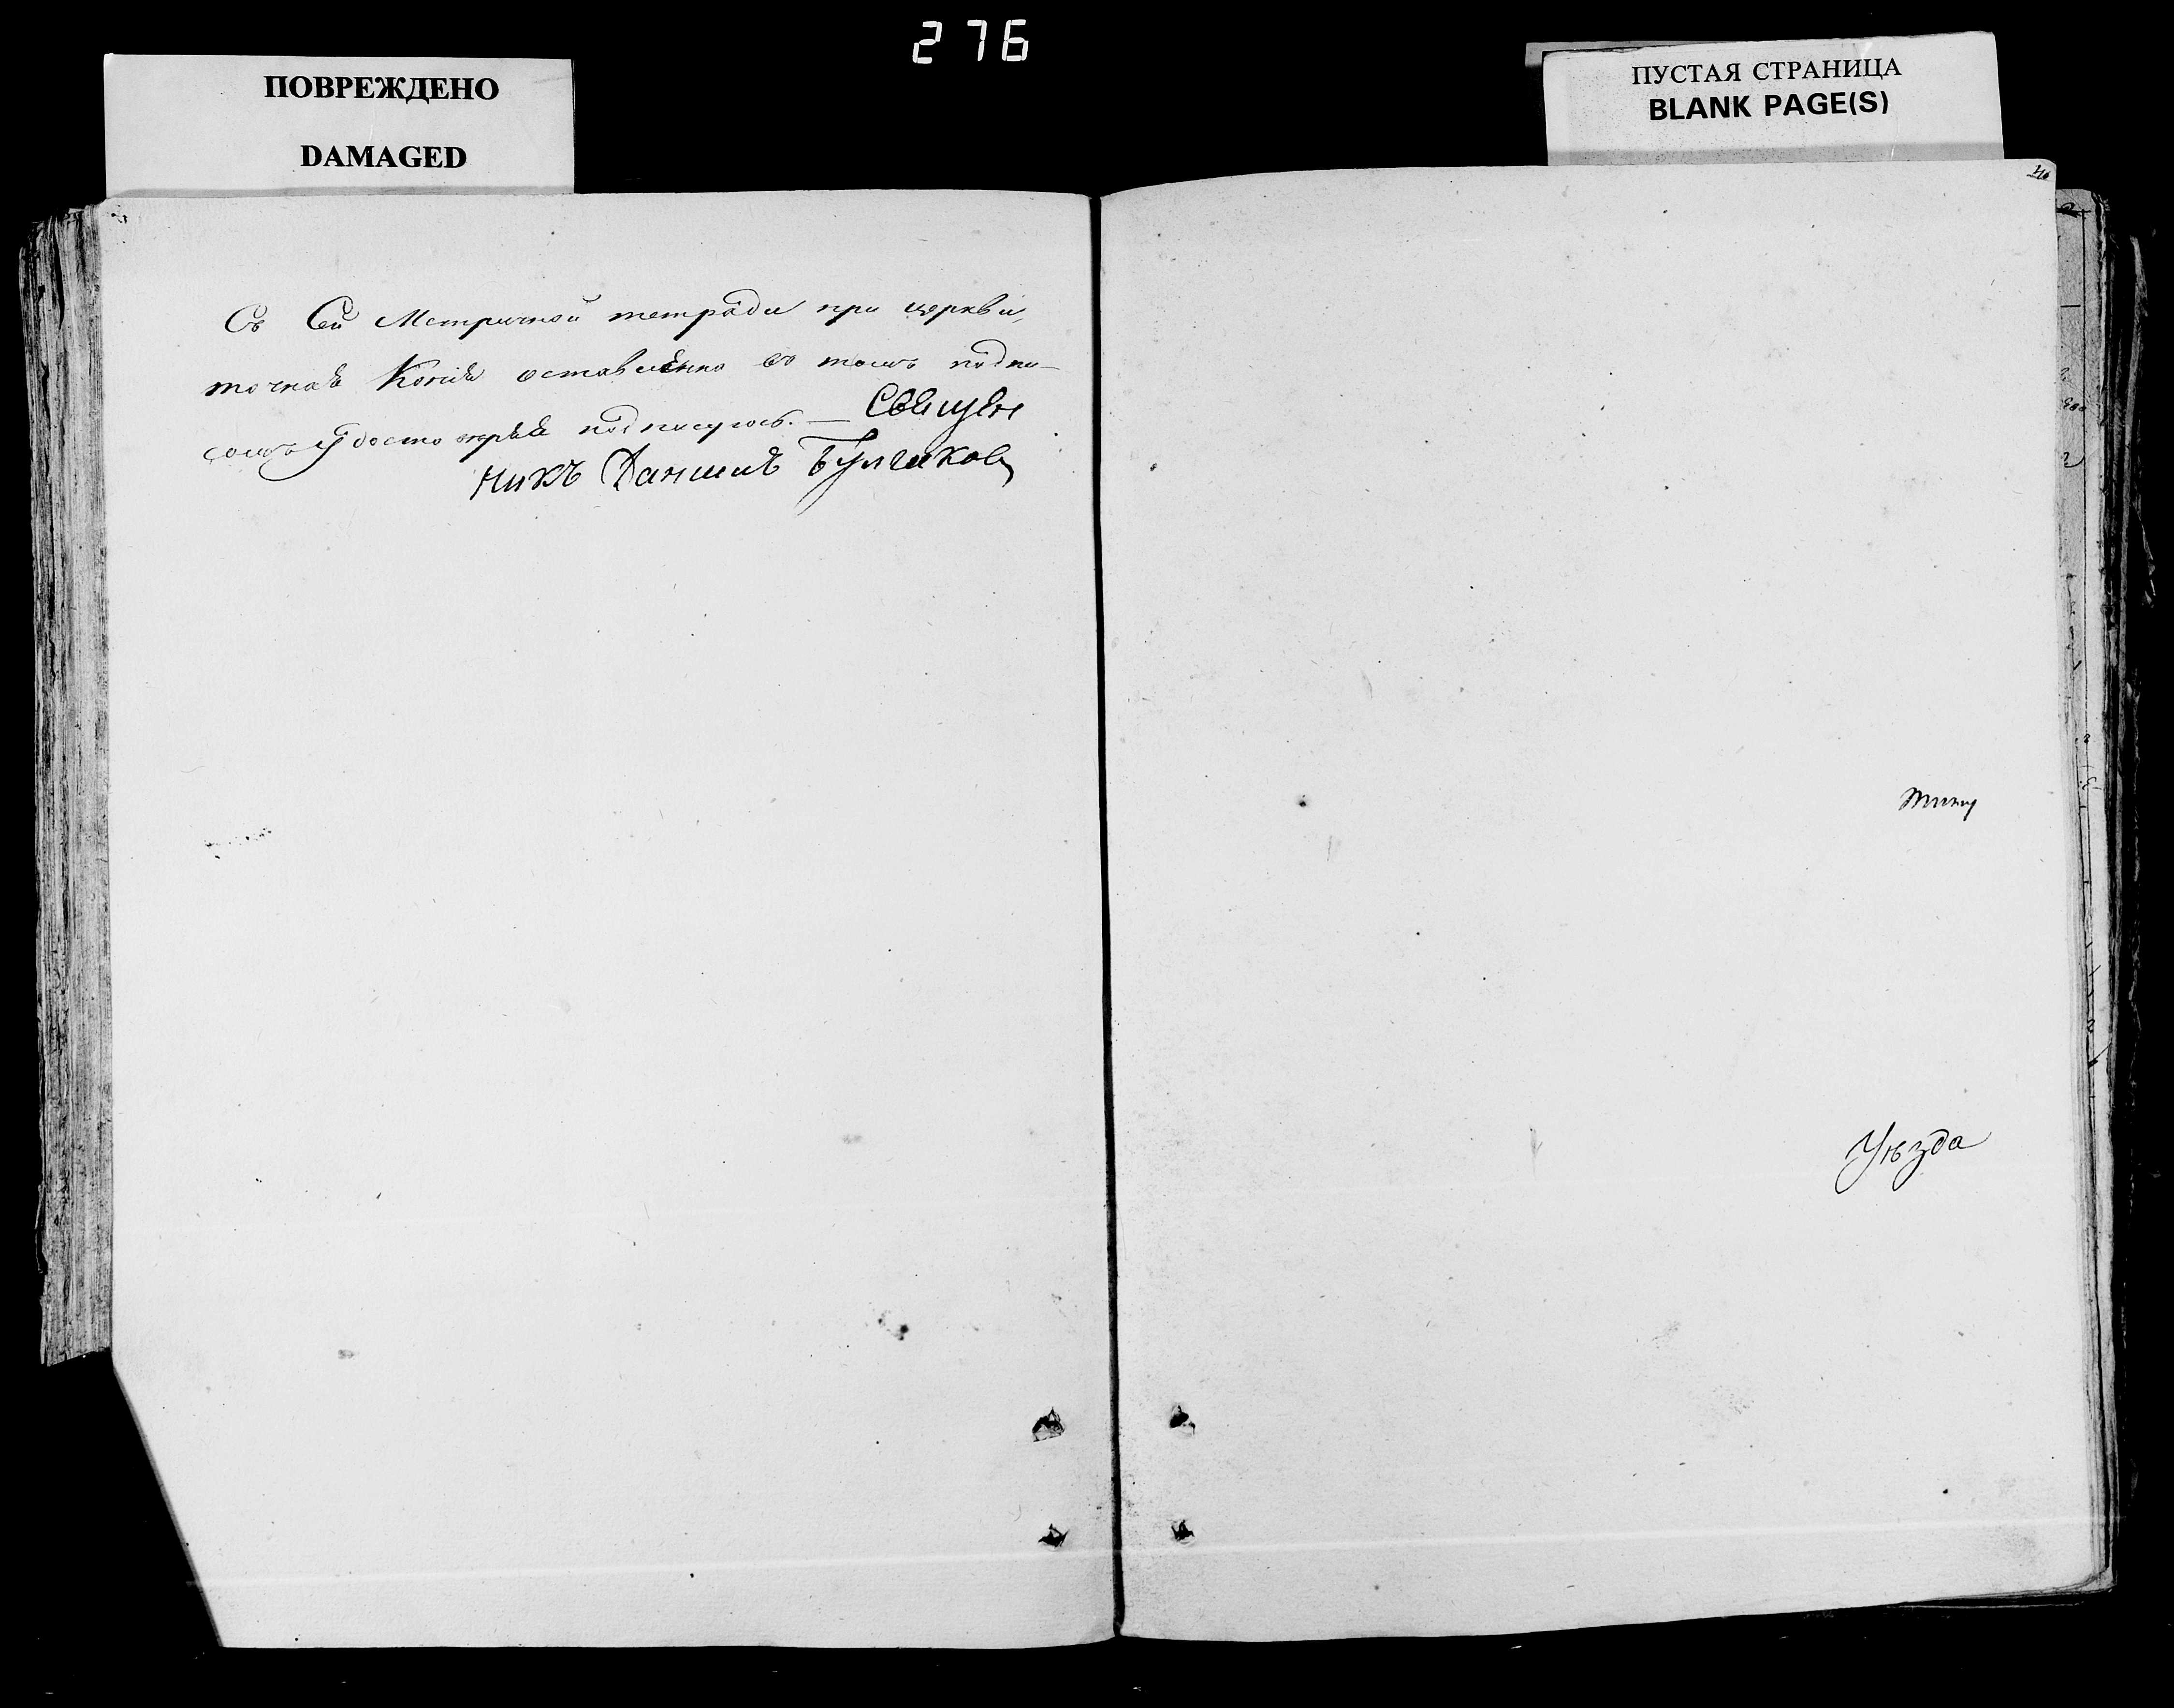 276
ПОВРЕЖДЕНО
DAMAGED
ПУСТАЯ СТРАНИЦА
BLANK PAGE(S)
Съ Сей Метричной тетради при церкви,
точная Копия оставлена въ томъ подпи-
сомъ удостоверяя подписуюсь. — Священ
никъ Даниилъ Булгаковъ
Уѣзда